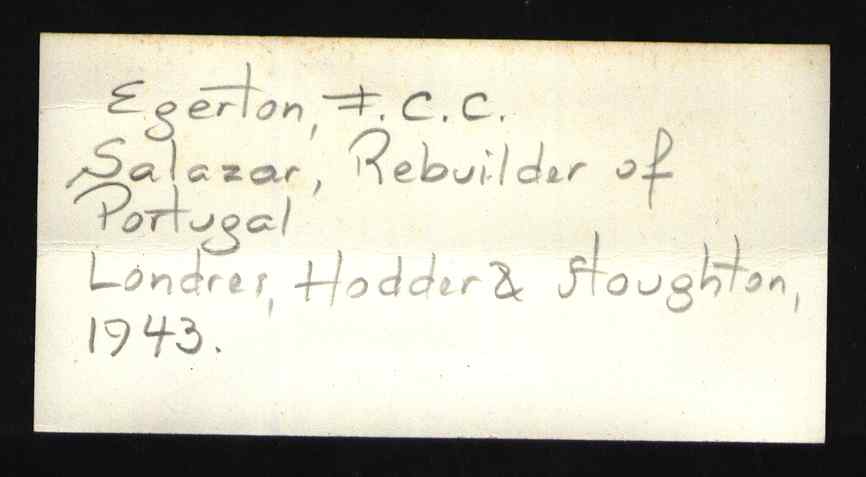 Egerton, F.C.C.
Salazar, Rebuilder of
Portugal
Londres, Hodder & Stoughton,
1943.